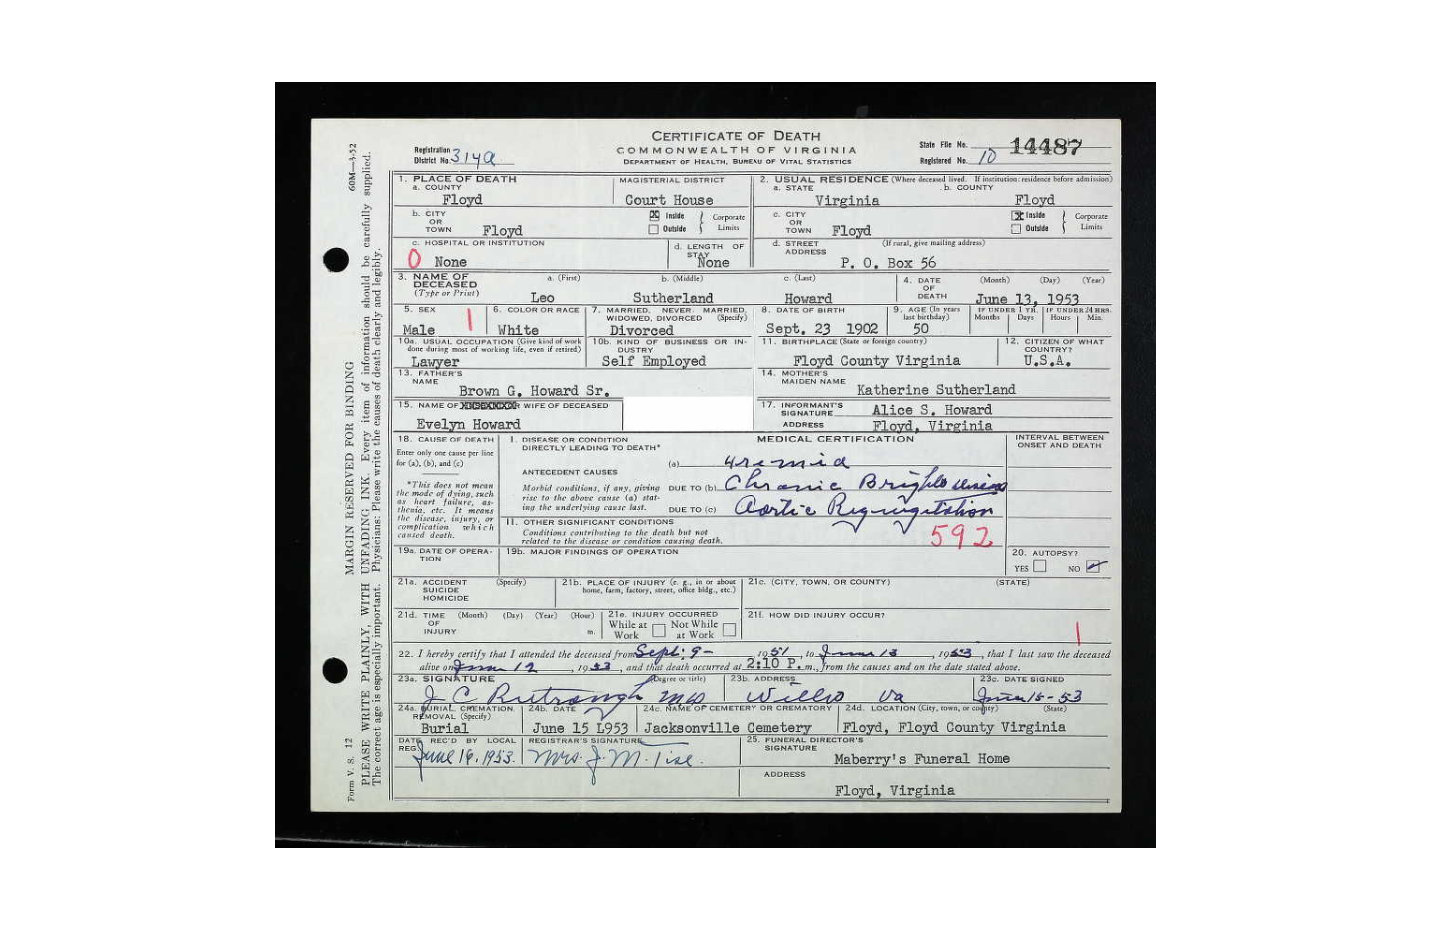 CERTIFICATE OF DEATH
COMMONWEALTH OF VIRGINIA
DEPARTMENT OF HEALTH, BUREAU OF VITAL STATISTICS
Registration District No. 314a
State File No. 14487
Registered No. 10
60M—3-52
MARGIN RESERVED FOR BINDING
PLEASE WRITE PLAINLY, WITH UNFADING INK. Every item of information should be carefully supplied.
The correct age is especially important. Physicians: Please write the causes of death clearly and legibly.
Form V. S. 12
1. PLACE OF DEATH
a. COUNTY
Floyd
MAGISTERIAL DISTRICT
Court House
2. USUAL RESIDENCE (Where deceased lived. If institution: residence before admission)
a. STATE
Virginia
b. COUNTY
Floyd
b. CITY OR TOWN Floyd
☒ Inside
☐ Outside
Corporate Limits
c. CITY OR TOWN Floyd
☒ Inside
☐ Outside
Corporate Limits
c. HOSPITAL OR INSTITUTION
0 None
d. LENGTH OF STAY
None
d. STREET ADDRESS (If rural, give mailing address)
P. O. Box 56
3. NAME OF DECEASED (Type or Print)
a. (First) b. (Middle) c. (Last)
Leo Sutherland Howard
4. DATE OF DEATH (Month) (Day) (Year)
June 13, 1953
5. SEX
Male 1
6. COLOR OR RACE
White
7. MARRIED, NEVER MARRIED, WIDOWED, DIVORCED (Specify)
Divorced
8. DATE OF BIRTH
Sept. 23 1902
9. AGE (In years last birthday)
50
IF UNDER 1 YR. Months Days
IF UNDER 24 HRS. Hours Min.
10a. USUAL OCCUPATION (Give kind of work done during most of working life, even if retired)
Lawyer
10b. KIND OF BUSINESS OR INDUSTRY
Self Employed
11. BIRTHPLACE (State or foreign country)
Floyd County Virginia
12. CITIZEN OF WHAT COUNTRY?
U.S.A.
13. FATHER'S NAME
Brown G. Howard Sr.
14. MOTHER'S MAIDEN NAME
Katherine Sutherland
15. NAME OF WIFE OF DECEASED
Evelyn Howard
17. INFORMANT'S SIGNATURE Alice S. Howard
ADDRESS Floyd, Virginia
18. CAUSE OF DEATH
Enter only one cause per line for (a), (b), and (c)
*This does not mean the mode of dying, such as heart failure, asthenia, etc. It means the disease, injury, or complication which caused death.
MEDICAL CERTIFICATION
INTERVAL BETWEEN ONSET AND DEATH
I. DISEASE OR CONDITION DIRECTLY LEADING TO DEATH*
(a) Uremia
ANTECEDENT CAUSES
Morbid conditions, if any, giving rise to the above cause (a) stating the underlying cause last.
DUE TO (b) Chronic Brights disease
DUE TO (c) Aortic Regurgitation
II. OTHER SIGNIFICANT CONDITIONS
Conditions contributing to the death but not related to the disease or condition causing death.
592
19a. DATE OF OPERATION
19b. MAJOR FINDINGS OF OPERATION
20. AUTOPSY?
YES ☐ NO ☑
21a. ACCIDENT SUICIDE HOMICIDE (Specify)
21b. PLACE OF INJURY (e. g., in or about home, farm, factory, street, office bldg., etc.)
21c. (CITY, TOWN, OR COUNTY) (STATE)
21d. TIME OF INJURY (Month) (Day) (Year) (Hour) m.
21e. INJURY OCCURRED
While at Work ☐ Not While at Work ☐
21f. HOW DID INJURY OCCUR?
1
22. I hereby certify that I attended the deceased from Sept. 9-, 1951, to June 13, 1953, that I last saw the deceased
alive on June 12, 1953, and that death occurred at 2:10 P. m., from the causes and on the date stated above.
23a. SIGNATURE (Degree or title)
J C Rutrough MD
23b. ADDRESS
Willis Va
23c. DATE SIGNED
June 15-53
24a. BURIAL, CREMATION, REMOVAL (Specify)
Burial
24b. DATE
June 15 1953
24c. NAME OF CEMETERY OR CREMATORY
Jacksonville Cemetery
24d. LOCATION (City, town, or county) (State)
Floyd, Floyd County Virginia
DATE REC'D BY LOCAL REG.
June 16, 1953.
REGISTRAR'S SIGNATURE
Mrs. J. M. Tise.
25. FUNERAL DIRECTOR'S SIGNATURE
Maberry's Funeral Home
ADDRESS
Floyd, Virginia